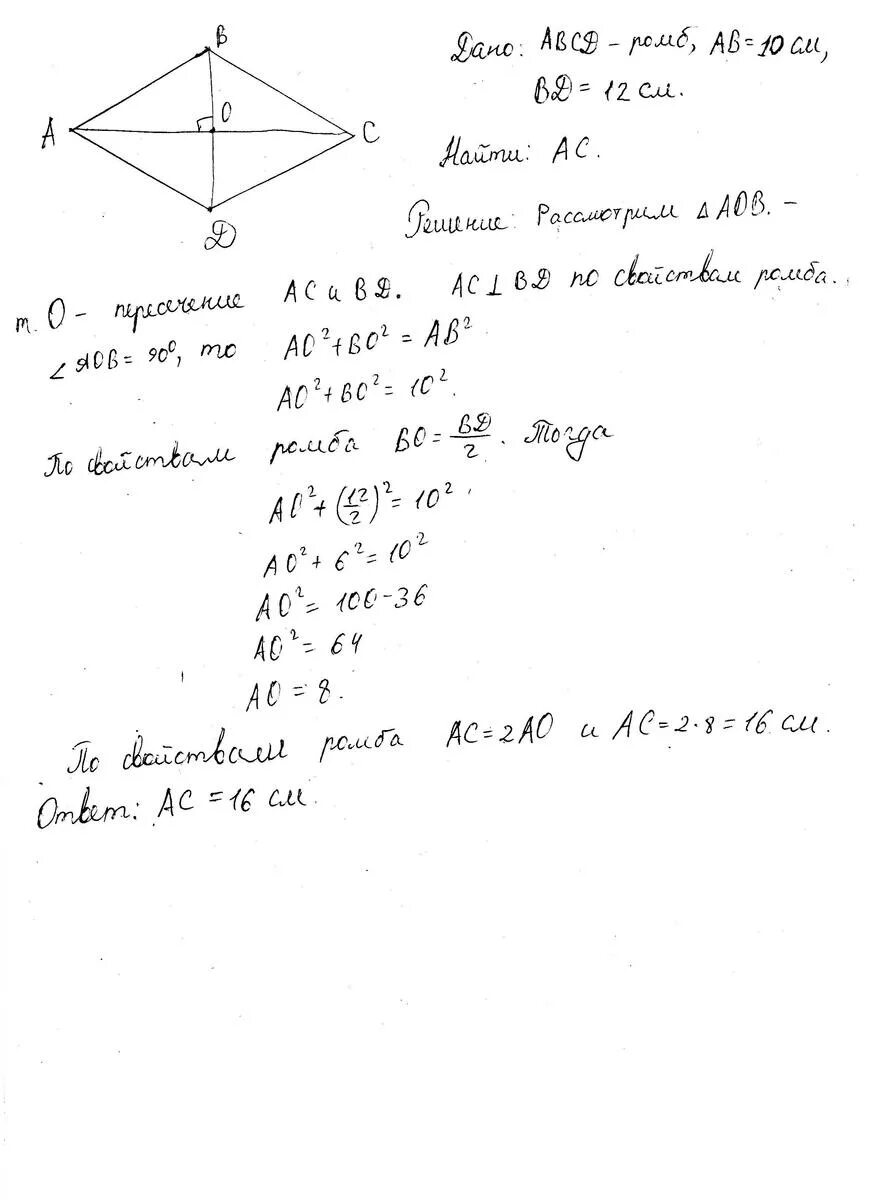 B
O
A
C
D
Дано: ABCD – ромб, AB = 10 см,
BD = 12 см.
Найти: AC.
Решение: Рассмотрим △AOB. –
т. O – пересечение AC и BD. AC ⊥ BD по свойствам ромба.
∠AOB = 90⁰, то AO² + BO² = AB²
AO² + BO² = 10².
По свойствам ромба BO = BD/2. Тогда
AO² + (12/2)² = 10².
AO² + 6² = 10²
AO² = 100 – 36
AO² = 64
AO = 8.
По свойствам ромба AC = 2AO и AC = 2·8 = 16 см.
Ответ: AC = 16 см.